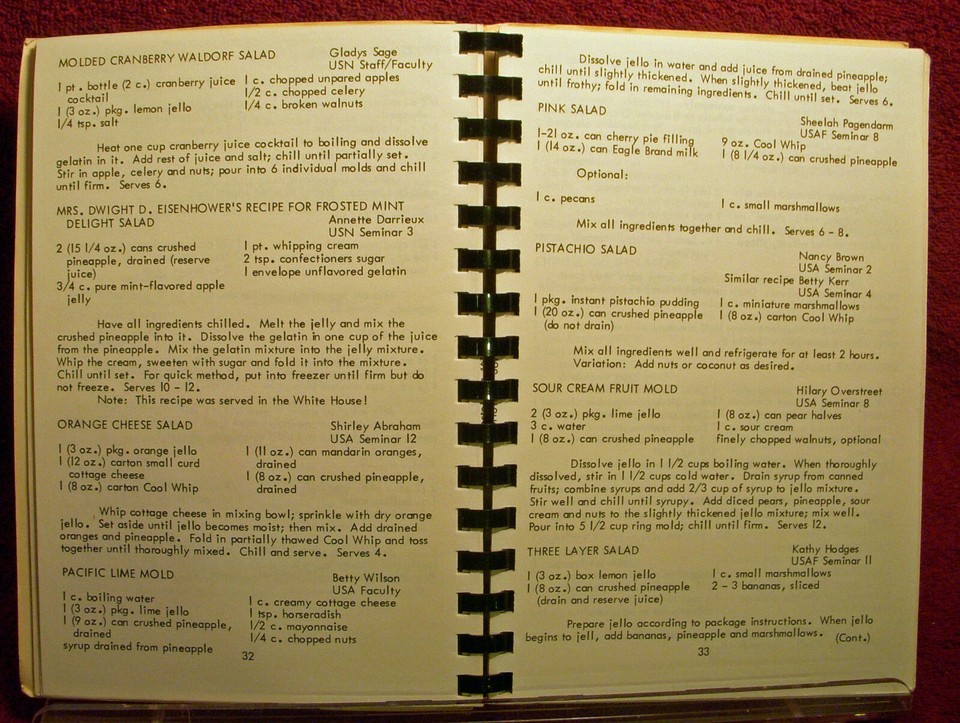 MOLDED CRANBERRY WALDORF SALAD Gladys Sage
USN Staff/Faculty
1 pt. bottle (2 c.) cranberry juice 1 c. chopped unpared apples
cocktail 1/2 c. chopped celery
1 (3 oz.) pkg. lemon jello 1/4 c. broken walnuts
1/4 tsp. salt
Heat one cup cranberry juice cocktail to boiling and dissolve
gelatin in it. Add rest of juice and salt; chill until partially set.
Stir in apple, celery and nuts; pour into 6 individual molds and chill
until firm. Serves 6.
MRS. DWIGHT D. EISENHOWER'S RECIPE FOR FROSTED MINT
DELIGHT SALAD Annette Darrieux
USN Seminar 3
2 (15 1/4 oz.) cans crushed 1 pt. whipping cream
pineapple, drained (reserve 2 tsp. confectioners sugar
juice) 1 envelope unflavored gelatin
3/4 c. pure mint-flavored apple
jelly
Have all ingredients chilled. Melt the jelly and mix the
crushed pineapple into it. Dissolve the gelatin in one cup of the juice
from the pineapple. Mix the gelatin mixture into the jelly mixture.
Whip the cream, sweeten with sugar and fold it into the mixture.
Chill until set. For quick method, put into freezer until firm but do
not freeze. Serves 10 - 12.
Note: This recipe was served in the White House!
ORANGE CHEESE SALAD Shirley Abraham
USA Seminar 12
1 (3 oz.) pkg. orange jello 1 (11 oz.) can mandarin oranges,
1 (12 oz.) carton small curd drained
cottage cheese 1 (8 oz.) can crushed pineapple,
1 (8 oz.) carton Cool Whip drained
Whip cottage cheese in mixing bowl; sprinkle with dry orange
jello. Set aside until jello becomes moist; then mix. Add drained
oranges and pineapple. Fold in partially thawed Cool Whip and toss
together until thoroughly mixed. Chill and serve. Serves 4.
PACIFIC LIME MOLD Betty Wilson
USA Faculty
1 c. boiling water 1 c. creamy cottage cheese
1 (3 oz.) pkg. lime jello 1 tsp. horseradish
1 (9 oz.) can crushed pineapple, 1/2 c. mayonnaise
drained 1/4 c. chopped nuts
syrup drained from pineapple
32
Dissolve jello in water and add juice from drained pineapple;
chill until slightly thickened. When slightly thickened, beat jello
until frothy; fold in remaining ingredients. Chill until set. Serves 6.
PINK SALAD Sheelah Pagendarm
USAF Seminar 8
1-21 oz. can cherry pie filling 9 oz. Cool Whip
1 (14 oz.) can Eagle Brand milk 1 (8 1/4 oz.) can crushed pineapple
Optional:
1 c. pecans 1 c. small marshmallows
Mix all ingredients together and chill. Serves 6 - 8.
PISTACHIO SALAD Nancy Brown
USA Seminar 2
Similar recipe Betty Kerr
USA Seminar 4
1 pkg. instant pistachio pudding 1 c. miniature marshmallows
1 (20 oz.) can crushed pineapple 1 (8 oz.) carton Cool Whip
(do not drain)
Mix all ingredients well and refrigerate for at least 2 hours.
Variation: Add nuts or coconut as desired.
SOUR CREAM FRUIT MOLD Hilary Overstreet
USA Seminar 8
2 (3 oz.) pkg. lime jello 1 (8 oz.) can pear halves
3 c. water 1 c. sour cream
1 (8 oz.) can crushed pineapple finely chopped walnuts, optional
Dissolve jello in 1 1/2 cups boiling water. When thoroughly
dissolved, stir in 1 1/2 cups cold water. Drain syrup from canned
fruits; combine syrups and add 2/3 cup of syrup to jello mixture.
Stir well and chill until syrupy. Add diced pears, pineapple, sour
cream and nuts to the slightly thickened jello mixture; mix well.
Pour into 5 1/2 cup ring mold; chill until firm. Serves 12.
THREE LAYER SALAD Kathy Hodges
USAF Seminar 11
1 (3 oz.) box lemon jello 1 c. small marshmallows
1 (8 oz.) can crushed pineapple 2 - 3 bananas, sliced
(drain and reserve juice)
Prepare jello according to package instructions. When jello
begins to jell, add bananas, pineapple and marshmallows. (Cont.)
33